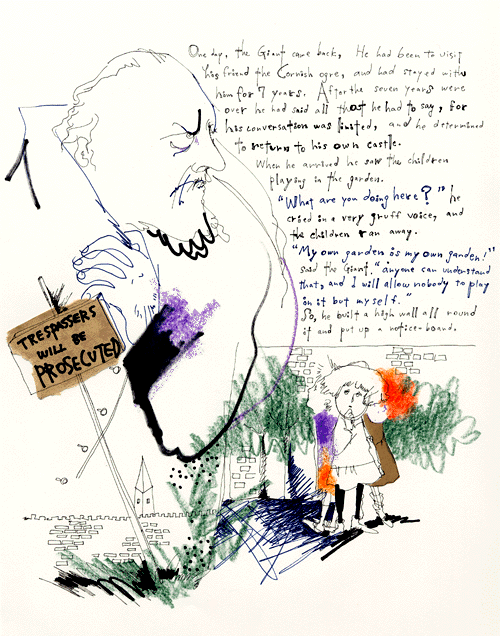 One day, the Giant came back, He had been to visit
his friend the Cornish ogre, and had stayed with
him for 7 years. After the seven years were
over he had said all that he had to say, for
his conversation was limited, and he determined
to return to his own castle.
When he arrived he saw the children
playing in the garden.
"What are you doing here?" he
cried in a very gruff voice, and
the children ran away.
"My own garden is my own garden!"
said the Giant. "anyone can understand
that, and I will allow nobody to play
in it but myself."
So, he built a high wall all round
it and put up a notice-board.
TRESPASSERS
WILL BE
PROSECUTED